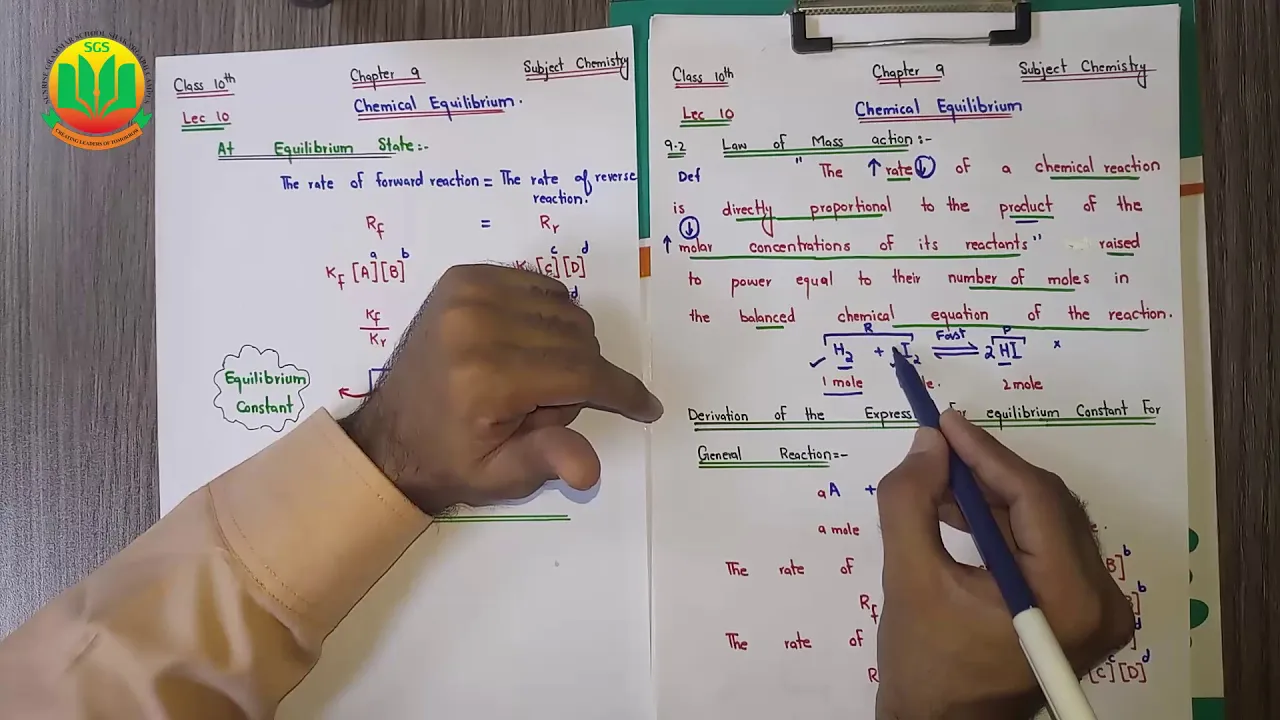 SGS
SUNRISE GRAMMAR SCHOOL
CREATING LEADERS OF TOMORROW
Class 10th Chapter 9 Subject Chemistry
Lec 10 Chemical Equilibrium.
At Equilibrium State:-
The rate of forward reaction = The rate of reverse
reaction.
Rf = Rr
Kf [A]a [B]b [C]c [D]d
Kf
Kr
Equilibrium
Constant
Class 10th Chapter 9 Subject Chemistry
Lec 10 Chemical Equilibrium
9.2 Law of Mass action:-
Def " The ↑ rate ↓ of a chemical reaction
is directly proportional to the product of the
↑ ↓ molar concentrations of its reactants" raised
to power equal to their number of moles in
the balanced chemical equation of the reaction.
R Fast P
✓ H2 + I2 ⇌ 2HI x
1 mole 2 mole
Derivation of the For equilibrium Constant For
General Reaction:-
aA +
a mole
The rate of B]b
Rf
The rate of
R [C]c [D]d